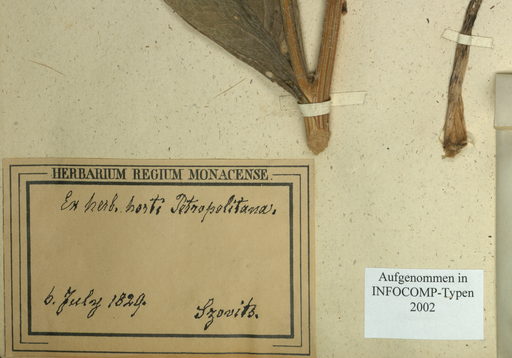 HERBARIUM REGIUM MONACENSE.
Ex herb. horti Petropolitana.
6. July 1829.
Szovits.
Aufgenommen in
INFOCOMP-Typen
2002